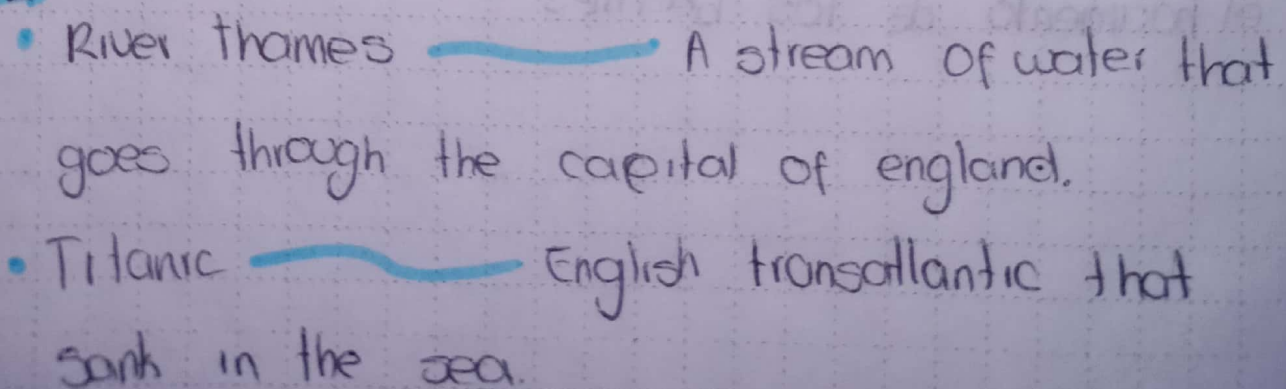 • River thames — A stream of water that
goes through the capital of england.
• Titanic — English transatlantic that
sank in the sea.